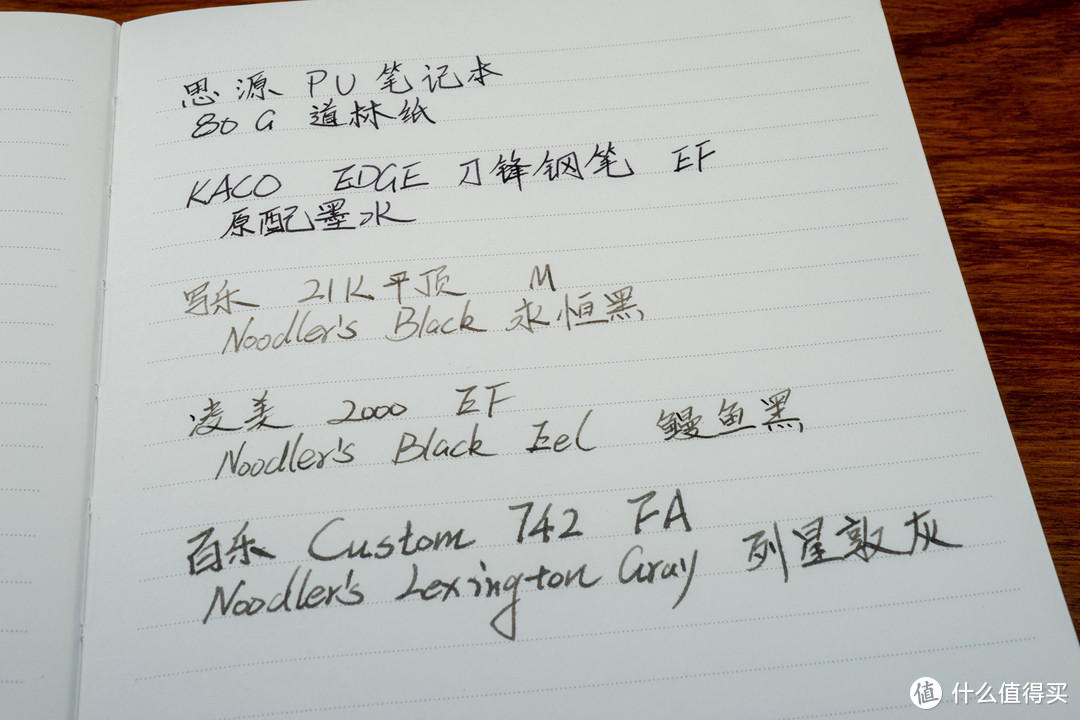 思源 PU 笔记本
80G 道林纸
KACO EDGE 刀锋钢笔 EF
原配墨水
写乐 21K平顶 M
Noodler's Black 永恒黑
凌美 2000 EF
Noodler's Black Eel 鳗鱼黑
百乐 Custom 742 FA
Noodler's Lexington Gray 列星敦灰
值 什么值得买